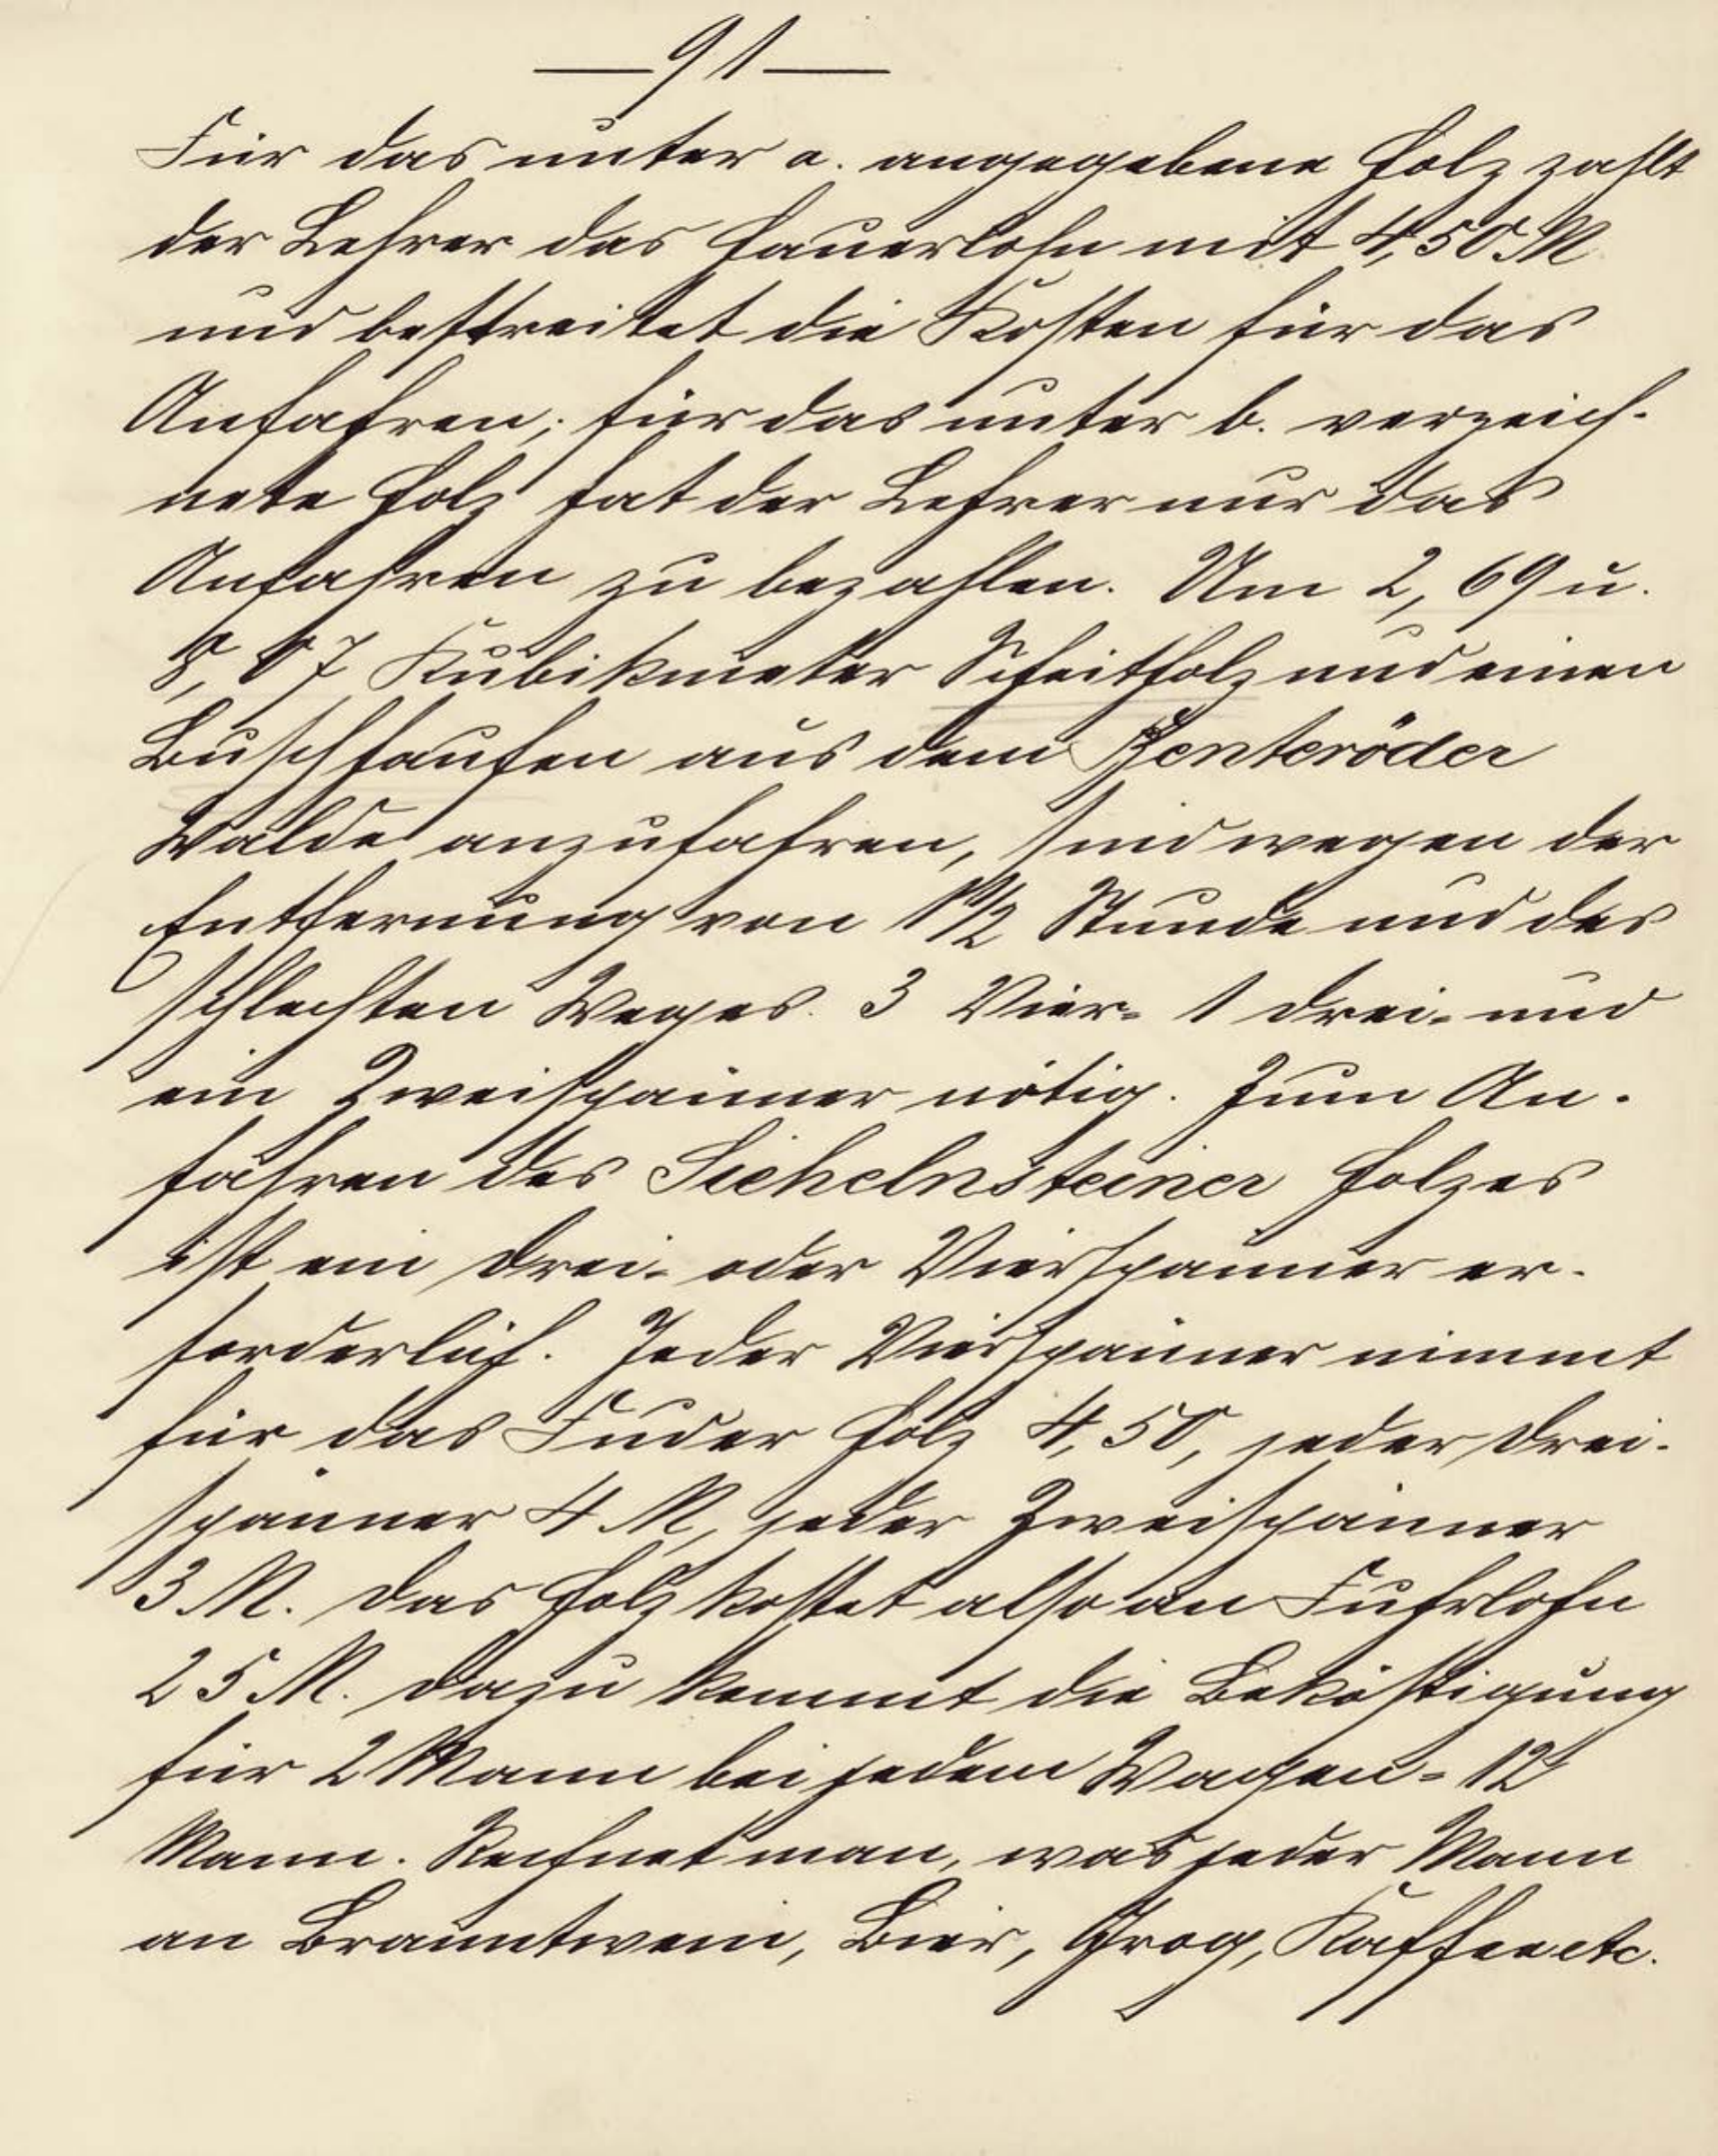 — 91 —
Für das unter a. angegebene Holz zahlt
der Lehrer das Hauerlohn mit 4,50 M
und bestreitet die Kosten für das
Anfahren; für das unter b. verzeich-
nete Holz hat der Lehrer nur das
Anfahren zu bezahlen. Um 2,69 u.
8,07 Kubikmeter Scheitholz und einen
Buschhaufen aus dem Benteröder
Walde anzufahren, sind wegen der
Entfernung von 1½ Stunde und des
schlechten Weges 3 Vier- 1 Drei- und
ein Zweispänner nötig. Zum An-
fahren des Sichelnsteiner Holzes
ist ein Drei- oder Vierspänner er-
forderlich. Jeder Vierspänner nimmt
für das Fuder Holz 4,50, jeder Drei-
spänner 4 M, jeder Zweispänner
3 M. Das Holz kostet also an Fuhrlohn
25 M. Dazu kommt die Beköstigung
für 2 Mann bei jedem Wagen = 12
Mann. Rechnet man, was jeder Mann
an Branntwein, Bier, Grog, Kaffee etc.